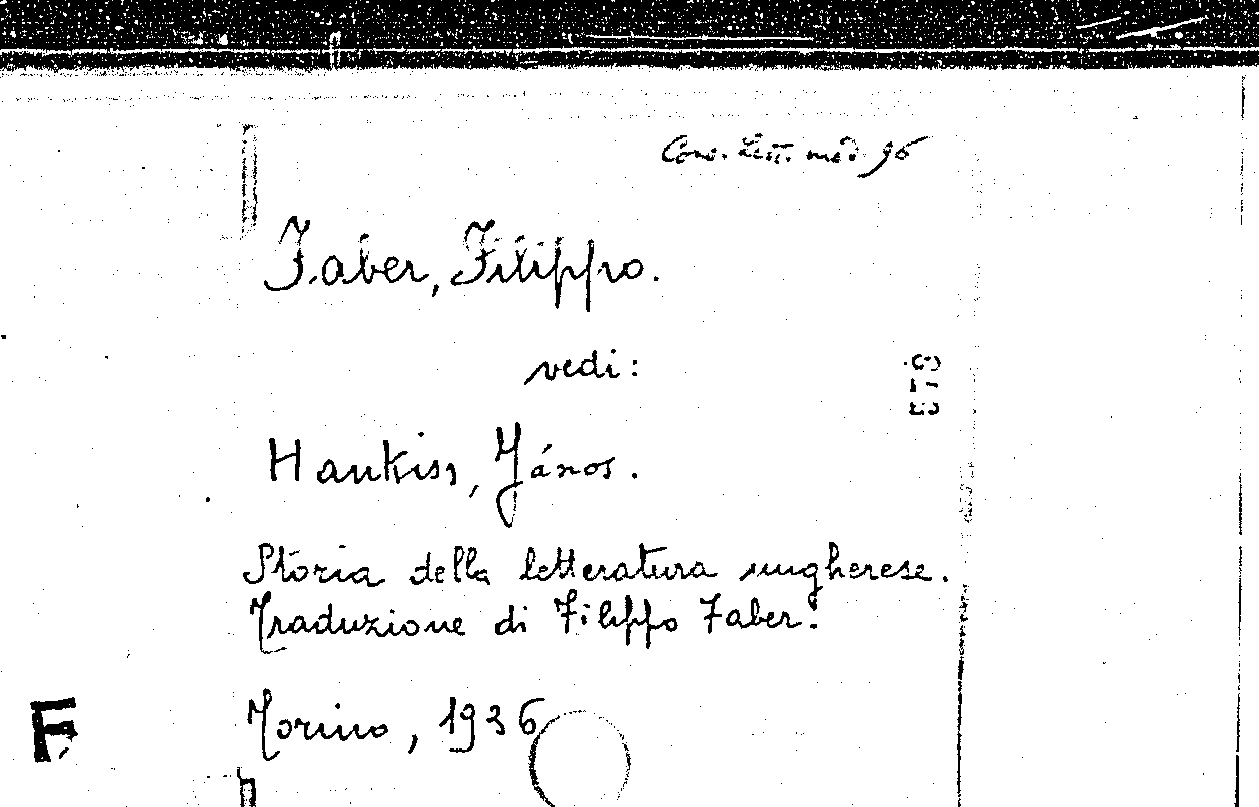 Cons. Lett. mod. 96
Faber, Filippo.
vedi:
579
Hankiss, János.
Storia della letteratura ungherese.
Traduzione di Filippo Faber.
Torino, 1936
F